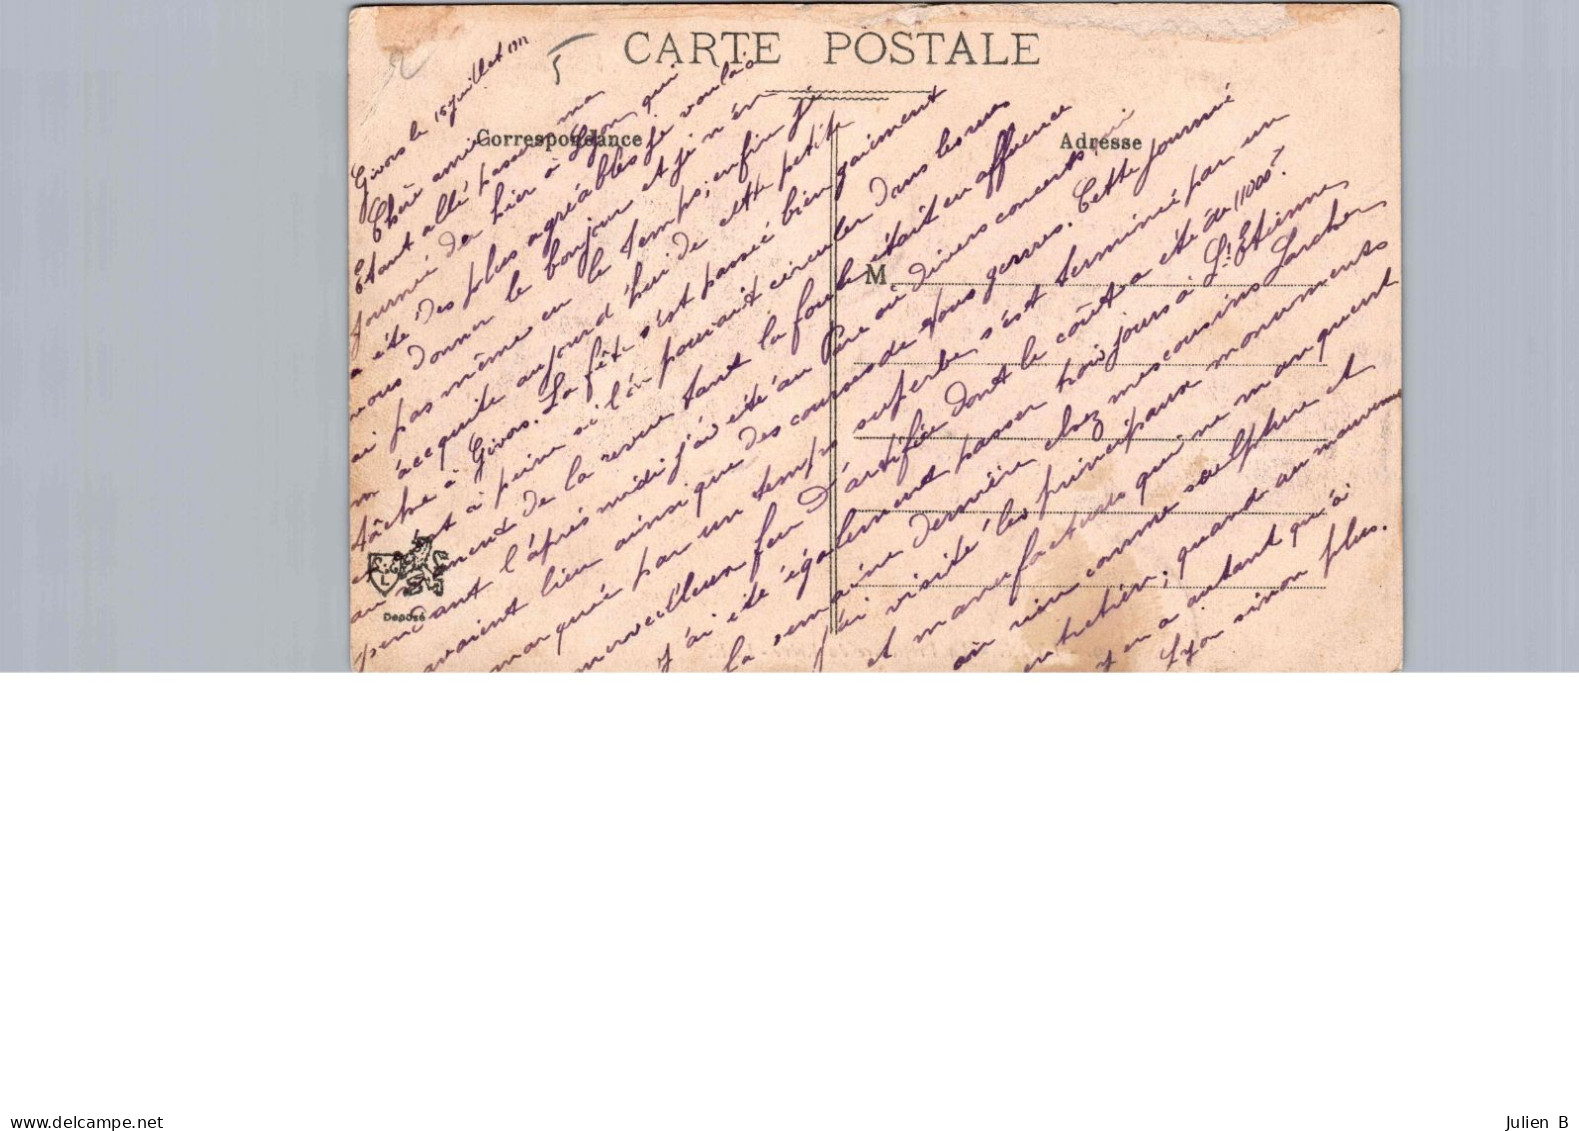 CARTE POSTALE
Correspondance
Adresse
M.
Déposé
C G L
5
Givors le 15 juillet 1911
Chère amie
Étant allé passer ma
journé de hier à Lyon qui
a été des plus agréables je voulais
vous donner le bonjour et je n'en
ai pas même eu le temps; enfin je
m'acequite aujourd'hui de cette petite
tâche à Givors. La fête s'est passée bien gaiement
et à peine si l'on pouvait circuler dans les rues
au moment de la revue tant la foule était en affluence
pendant l'après midi j'ai été au Parc où divers concerts
avaient lieu ainsi que des courses de tous genres. Cette journé
marqué par un temps superbe s'est terminé par un
merveilleux feu d'artifice dont le coût a été de 11000f
j'ai été également passer trois jours à St Etienne
la semaine dernière chez mes cousins Larcher
j'ai visité les principaux monuments
et manufactures qui ne manquent
en rien comme sculpture et
entretien; quand au mouvement
y en a autant qu'à
Lyon sinon plus.
delcampe.net
Julien B